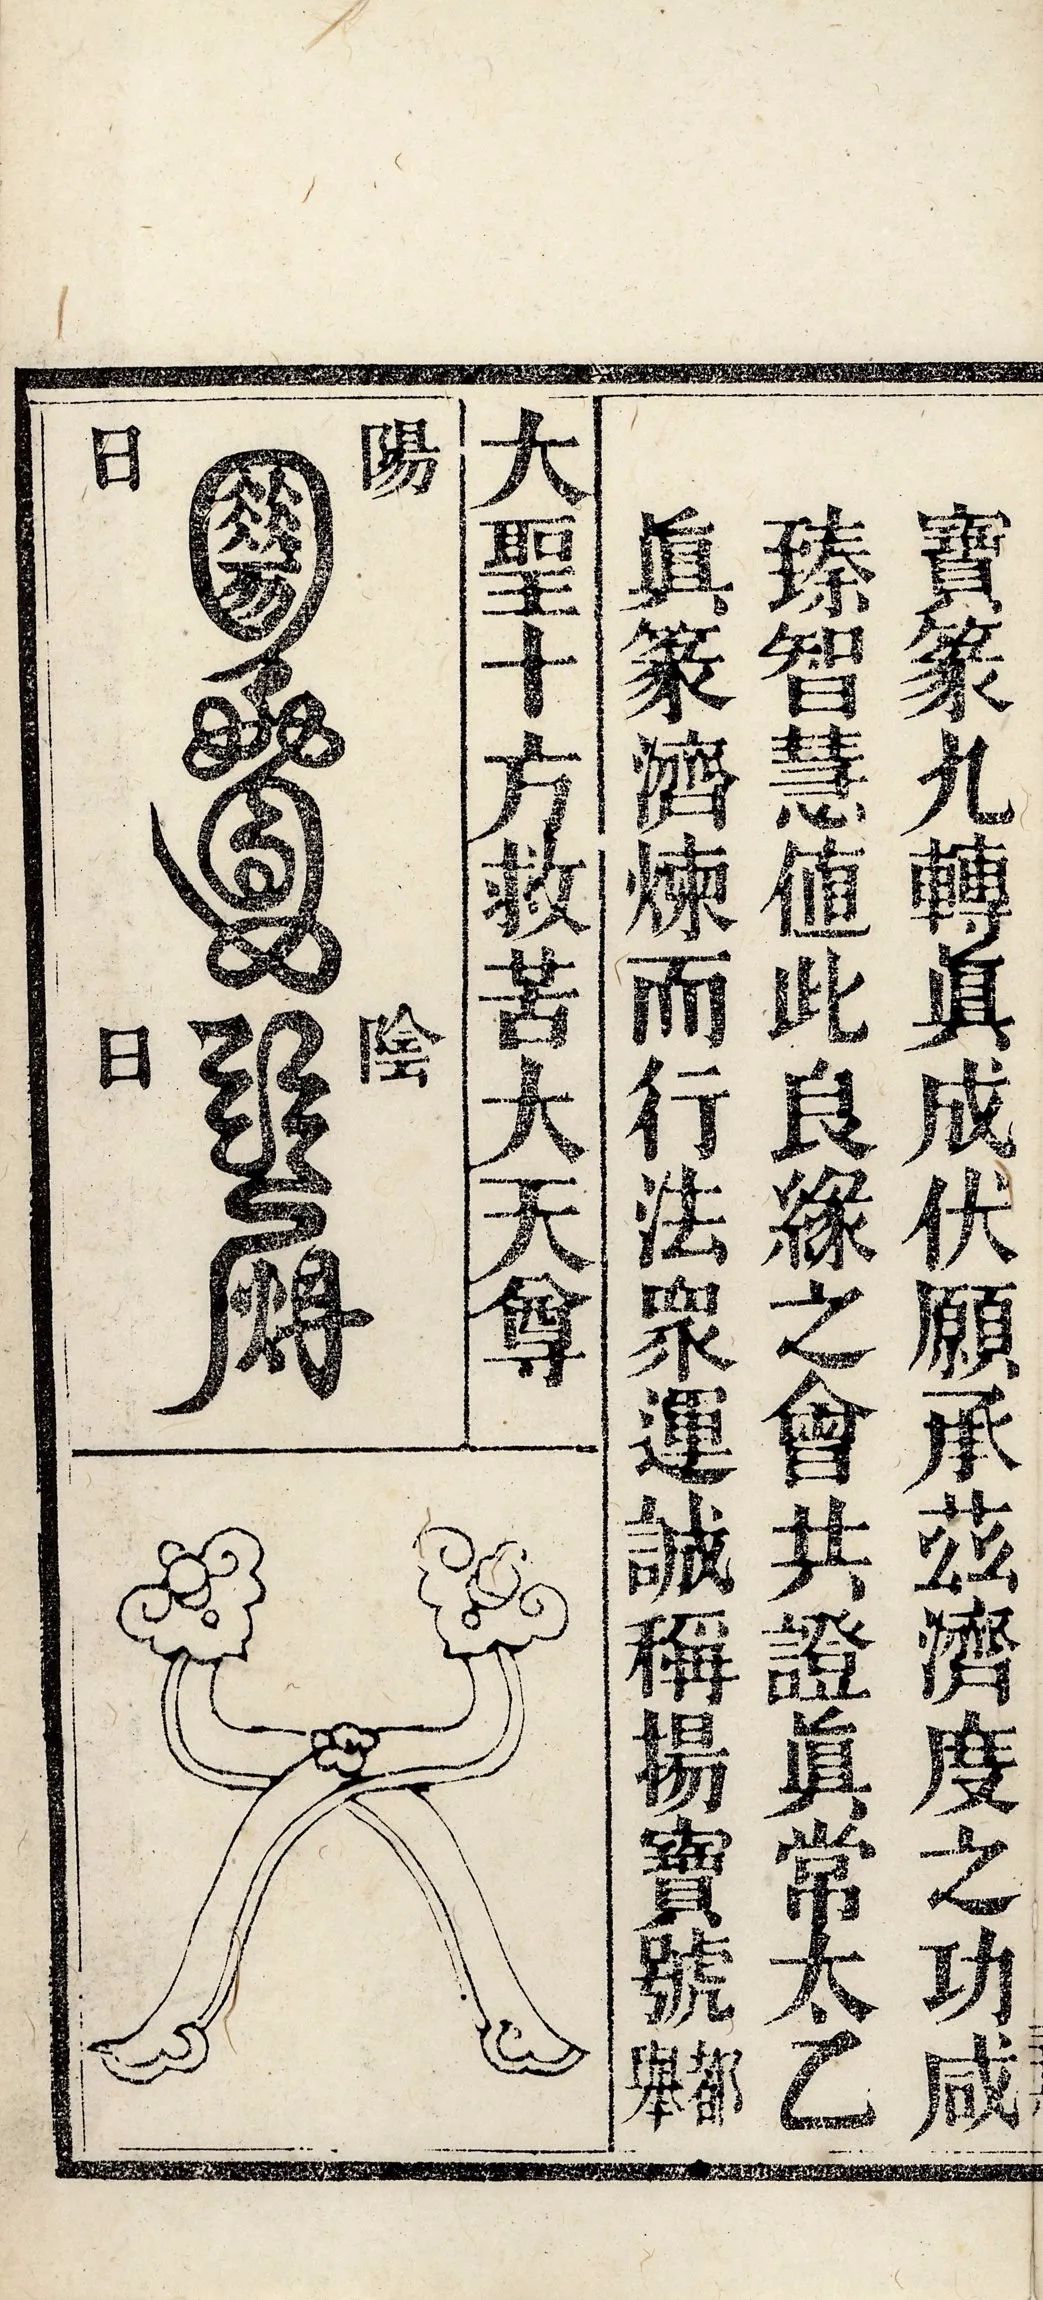 寶篆九轉眞成伏願承茲濟度之功咸
臻智慧値此良緣之會共證眞常太乙
眞篆濟煉而行法衆運誠稱揚寶號都舉
大聖十方救苦大天尊
陽日
陰日